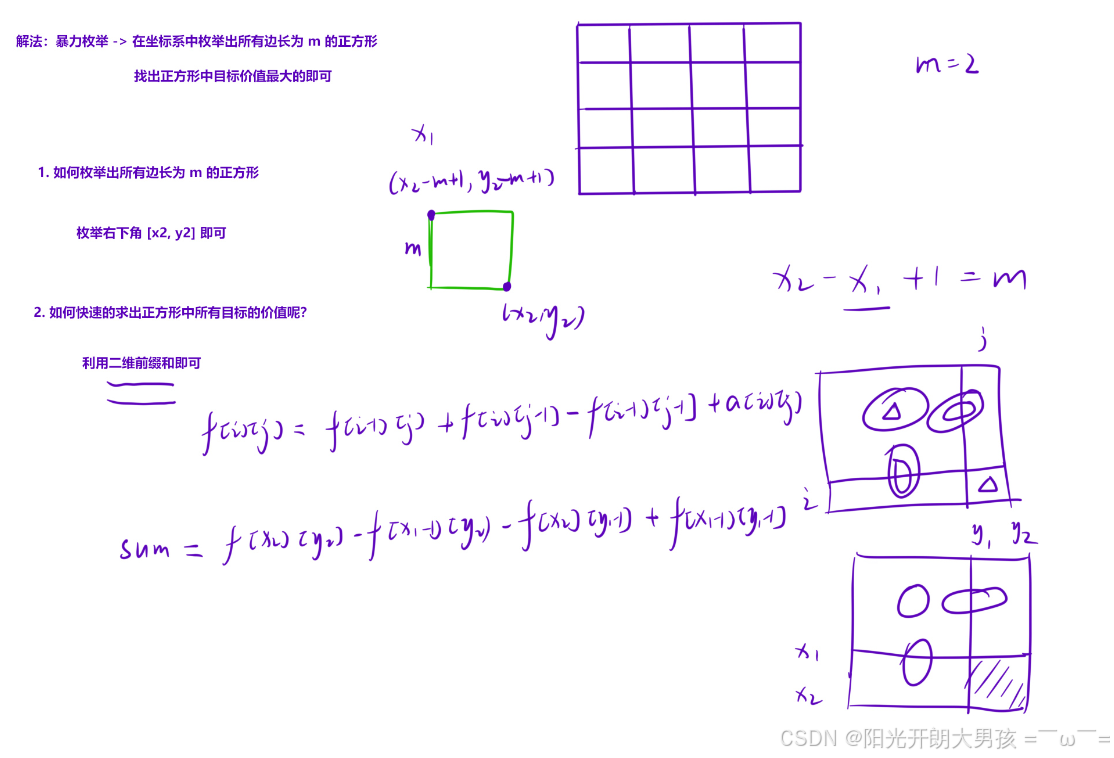 解法：暴力枚举 -> 在坐标系中枚举出所有边长为 m 的正方形
找出正方形中目标价值最大的即可
m=2
x₁
(x₂-m+1, y₂-m+1)
1. 如何枚举出所有边长为 m 的正方形
枚举右下角 [x2, y2] 即可
m
x₂ - x₁ + 1 = m
2. 如何快速的求出正方形中所有目标的价值呢？
(x₂, y₂)
利用二维前缀和即可
j
f[i][j] = f[i-1][j] + f[i][j-1] - f[i-1][j-1] + a[i][j]
i
sum = f[x₂][y₂] - f[x₁-1][y₂] - f[x₂][y₁-1] + f[x₁-1][y₁-1]
y₁ y₂
x₁
x₂
CSDN @阳光开朗大男孩 =￣ω￣=